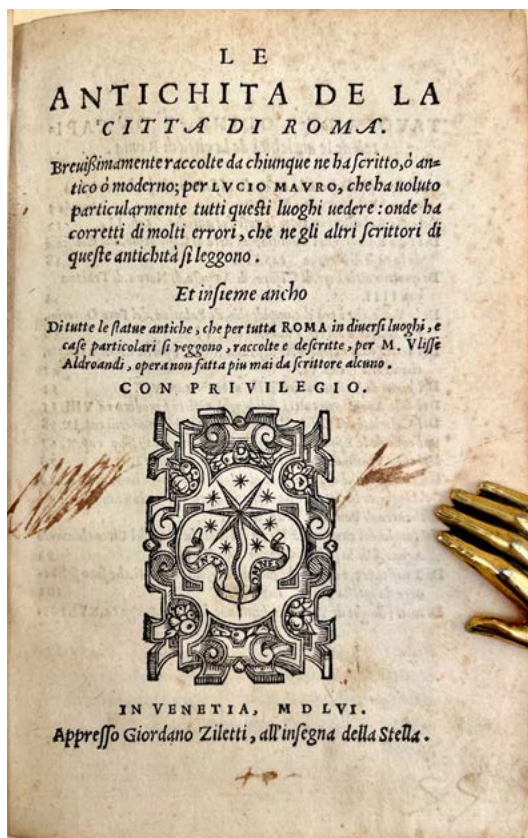 LE
ANTICHITA DE LA
CITTA DI ROMA.
Breuißimamente raccolte da chiunque ne ha scritto, ò an=
tico ò moderno; per LVCIO MAVRO, che ha uoluto
particularmente tutti questi luoghi uedere: onde ha
corretti di molti errori, che ne gli altri scrittori di
queste antichità si leggono.
Et insieme ancho
Di tutte le statue antiche, che per tutta ROMA in diuersi luoghi, e
case particolari si veggono, raccolte e descritte, per M. Vlisse
Aldroandi, opera non fatta piu mai da scrittore alcuno.
CON PRIVILEGIO.
IN VENETIA, MDLVI.
Appresso Giordano Ziletti, all'insegna della Stella.